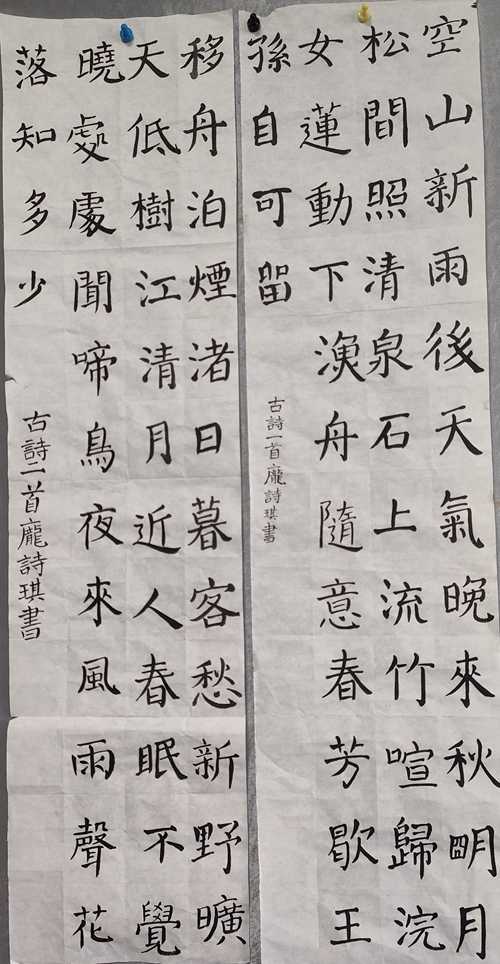 空山新雨後天氣晚來秋朙月
松間照清泉石上流竹喧歸浣
女蓮動下漁舟隨意春芳歇王
孫自可留
古詩一首龐詩琪書
移舟泊煙渚日暮客愁新野曠
天低樹江清月近人春眠不覺
曉處處聞啼鳥夜來風雨聲花
落知多少
古詩二首龐詩琪書